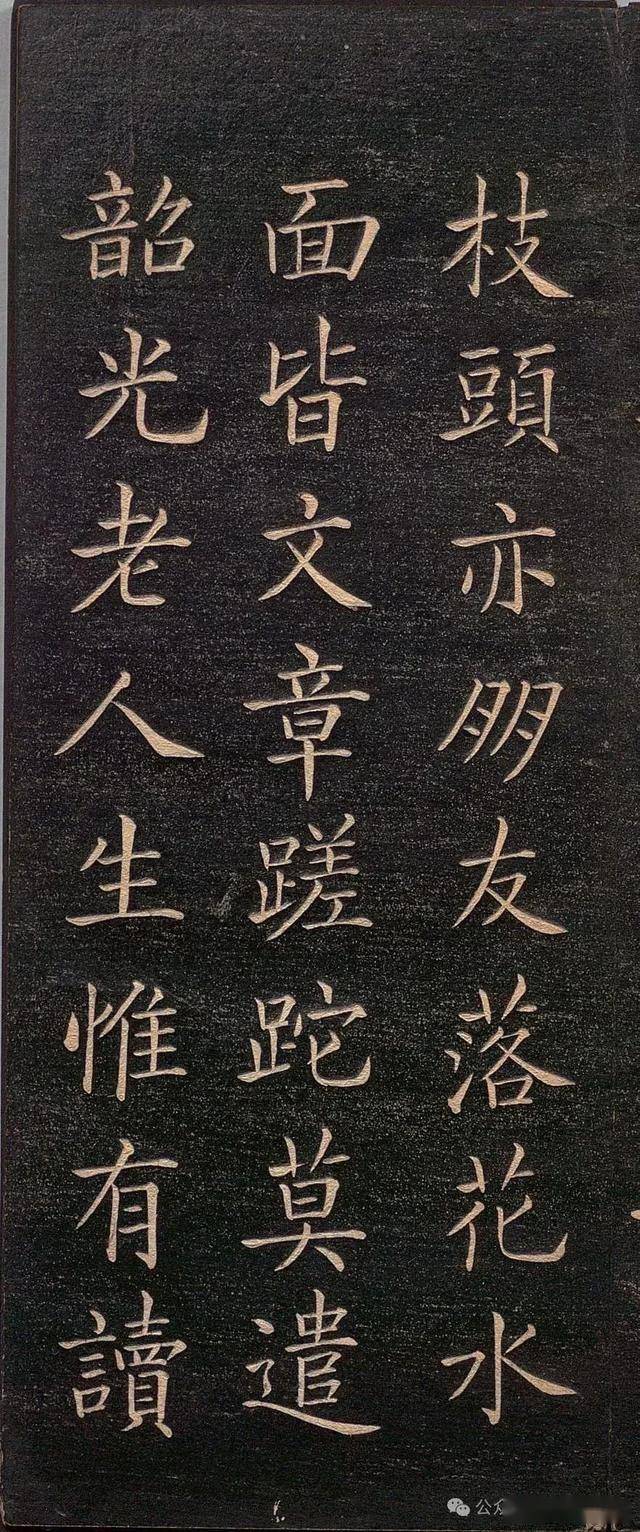 枝頭亦朋友落花水
面皆文章蹉跎莫遣
韶光老人生惟有讀
公众